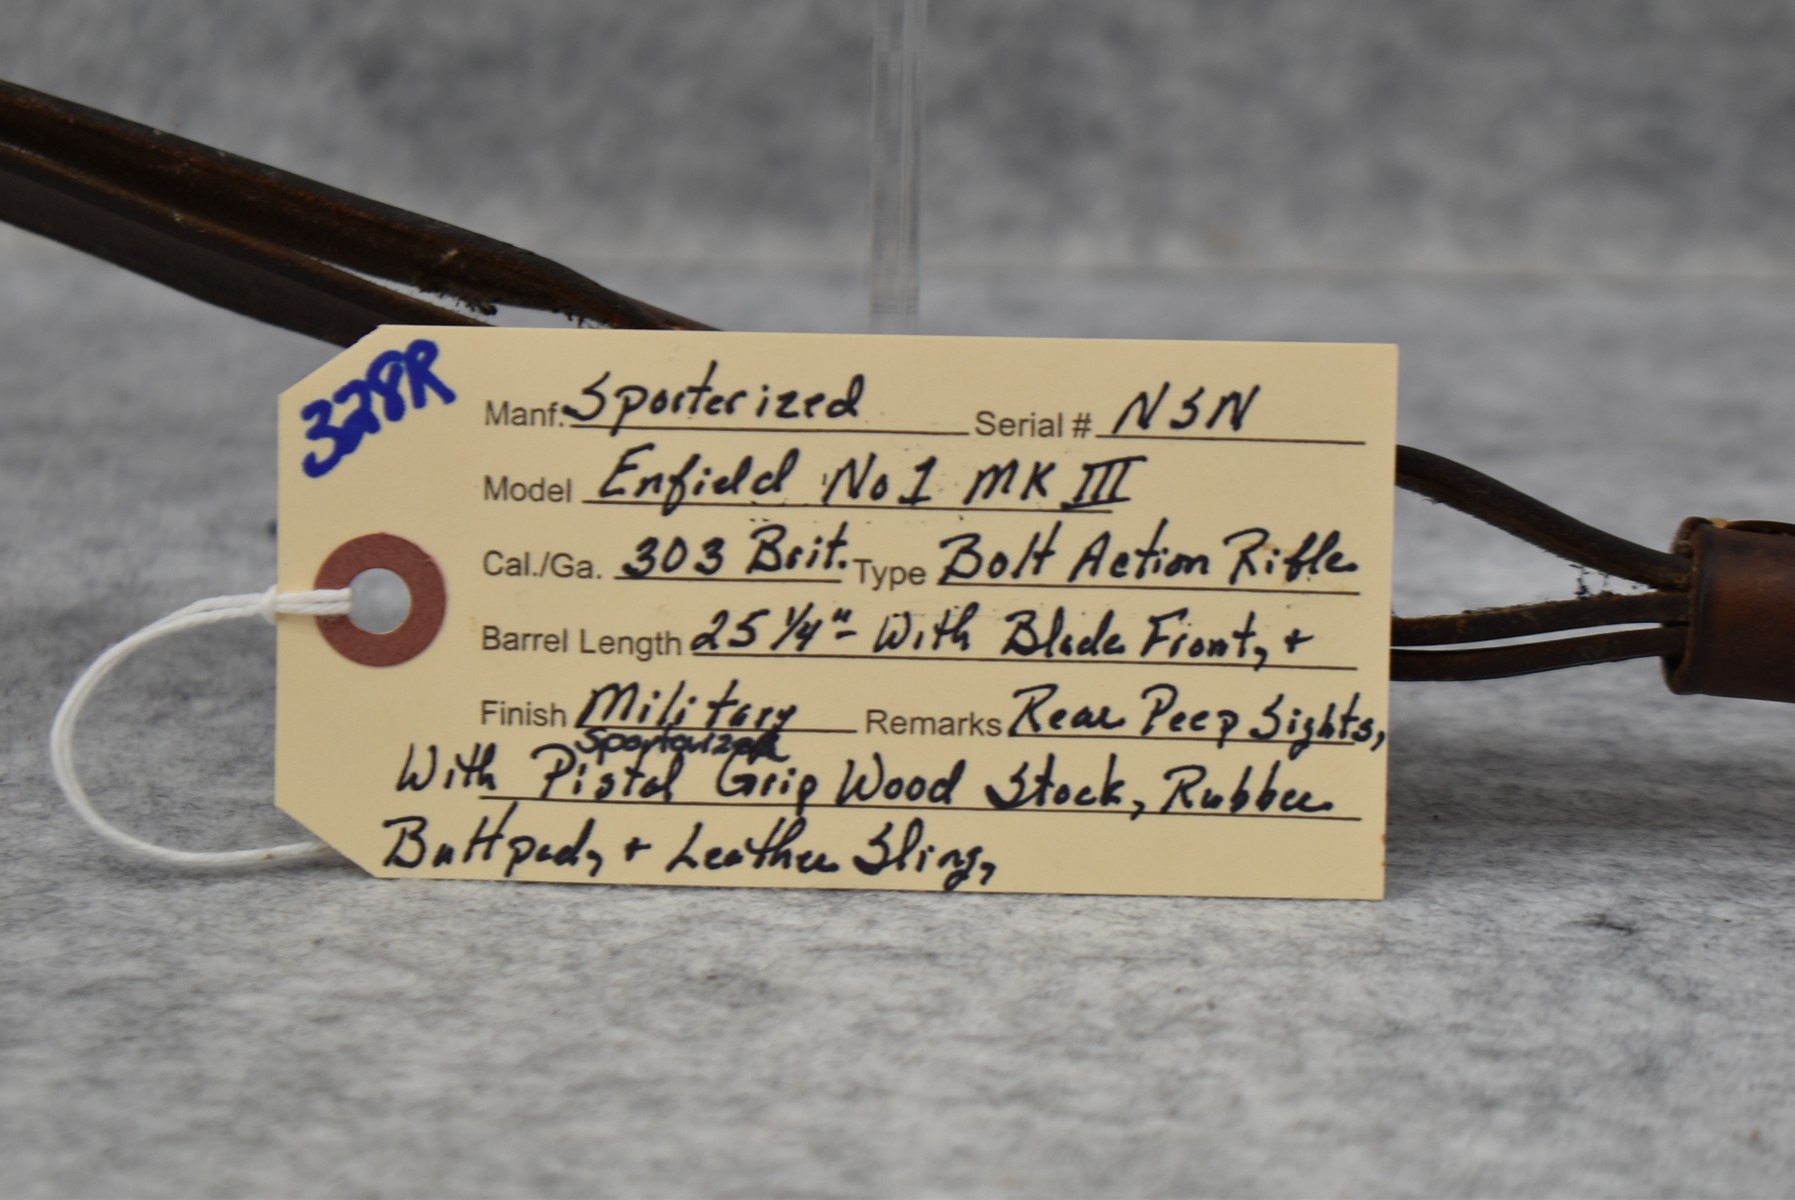 328R
Manf. Sporterized Serial # NSN
Model Enfield No 1 MK III
Cal./Ga. 303 Brit. Type Bolt Action Rifle
Barrel Length 25 1/4"- With Blade Front, +
Finish Military Remarks Rear Peep Sights,
Sporterized
With Pistol Grip Wood Stock, Rubber
Buttpad, + Leather Sling,